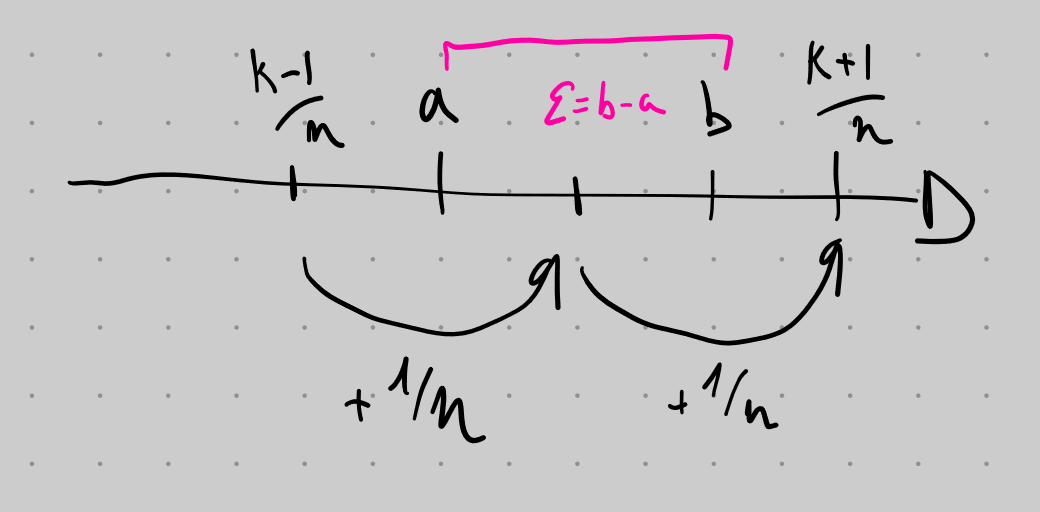 k-1/n
a
Ɛ=b-a
b
k+1/n
+ 1/n
+ 1/n